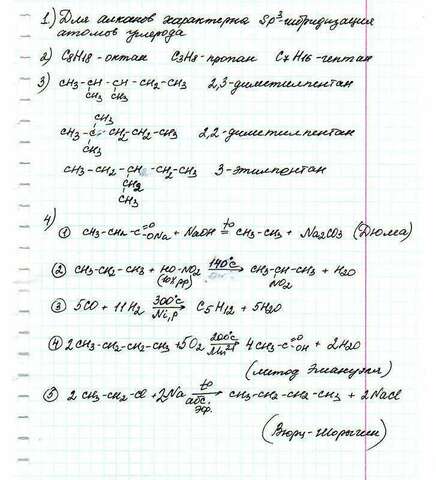 1) Для алканов характерна Sp³-гибридизация
атомов углерода
2) C8H18 - октан C3H8 - пропан C7H16 - гептан
3) CH3-CH-CH-CH2-CH3 2,3-диметилпентан
CH3 CH3
CH3
CH3-C-CH2-CH2-CH3 2,2-диметилпентан
CH3
CH3-CH2-CH-CH2-CH3 3-этилпентан
CH2
CH3
4)
① CH3-CH2-C=O ONa + NaOH t° = CH3-CH3 + Na2CO3 (Дюма)
② CH3-CH2-CH3 + HO-NO2 (10% рр) 140°C → CH3-CH-CH3 + H2O
NO2
③ 5CO + 11H2 300°C Ni,p → C5H12 + 5H2O
④ 2CH3-CH2-CH2-CH3 + 5O2 200°C Mn2+ → 4CH3-C=O OH + 2H2O
(метод Эмануэля)
⑤ 2 CH3-CH2-Cl + 2Na t° абс. эф. → CH3-CH2-CH2-CH3 + 2NaCl
(Вюрц-Шорыгин)